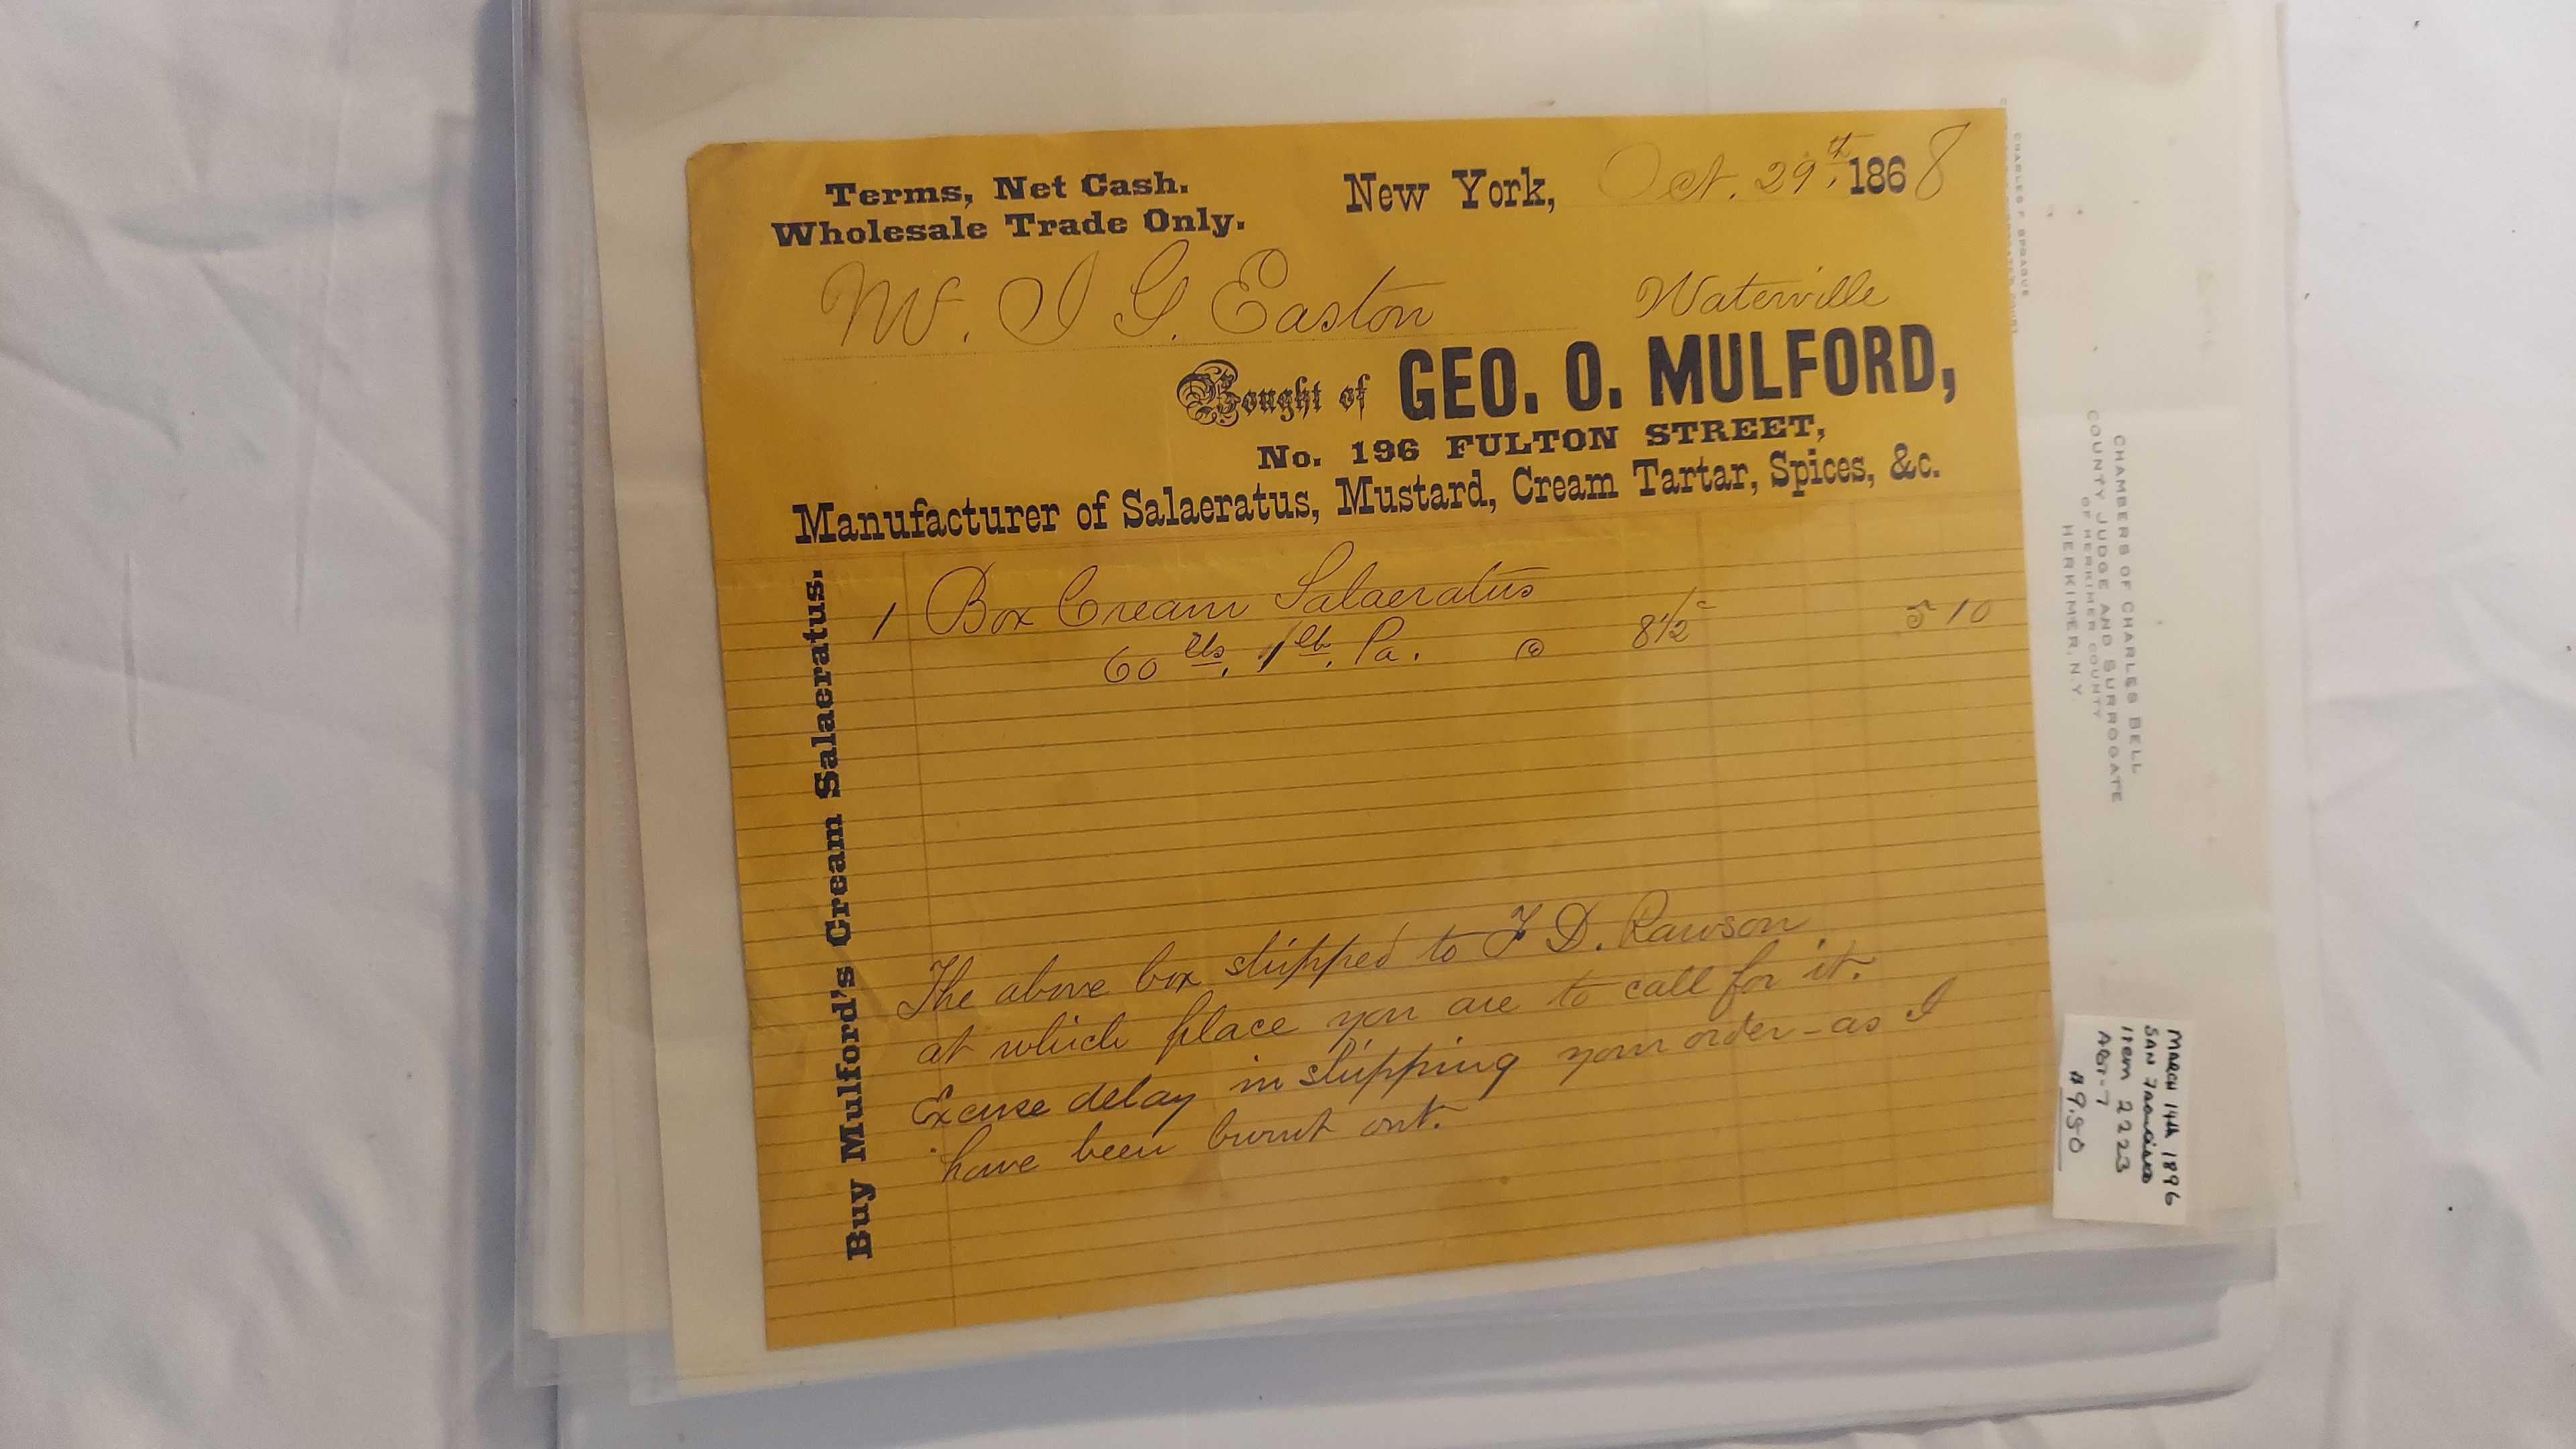 Terms, Net Cash.
Wholesale Trade Only.
New York, Oct. 29th, 1868
Mr. I G. Easton Waterville
Bought of GEO. O. MULFORD,
No. 196 FULTON STREET,
Manufacturer of Salaeratus, Mustard, Cream Tartar, Spices, &c.
Buy Mulford's Cream Salaeratus.
1 Box Cream Salaeratus
60 lbs. 1 lb. Pa. @ 8½ 5 10
The above box shipped to F D. Rawson
at which place you are to call for it.
Excuse delay in shipping your order - as I
have been burnt out.
CHARLES F. SPRAGUE
CHAMBERS OF CHARLES BELL
COUNTY JUDGE AND SURROGATE
OF HERKIMER COUNTY
HERKIMER, N.Y.
MARCH 14th 1896
SAN Francisco
ITEM 2223
$9.50